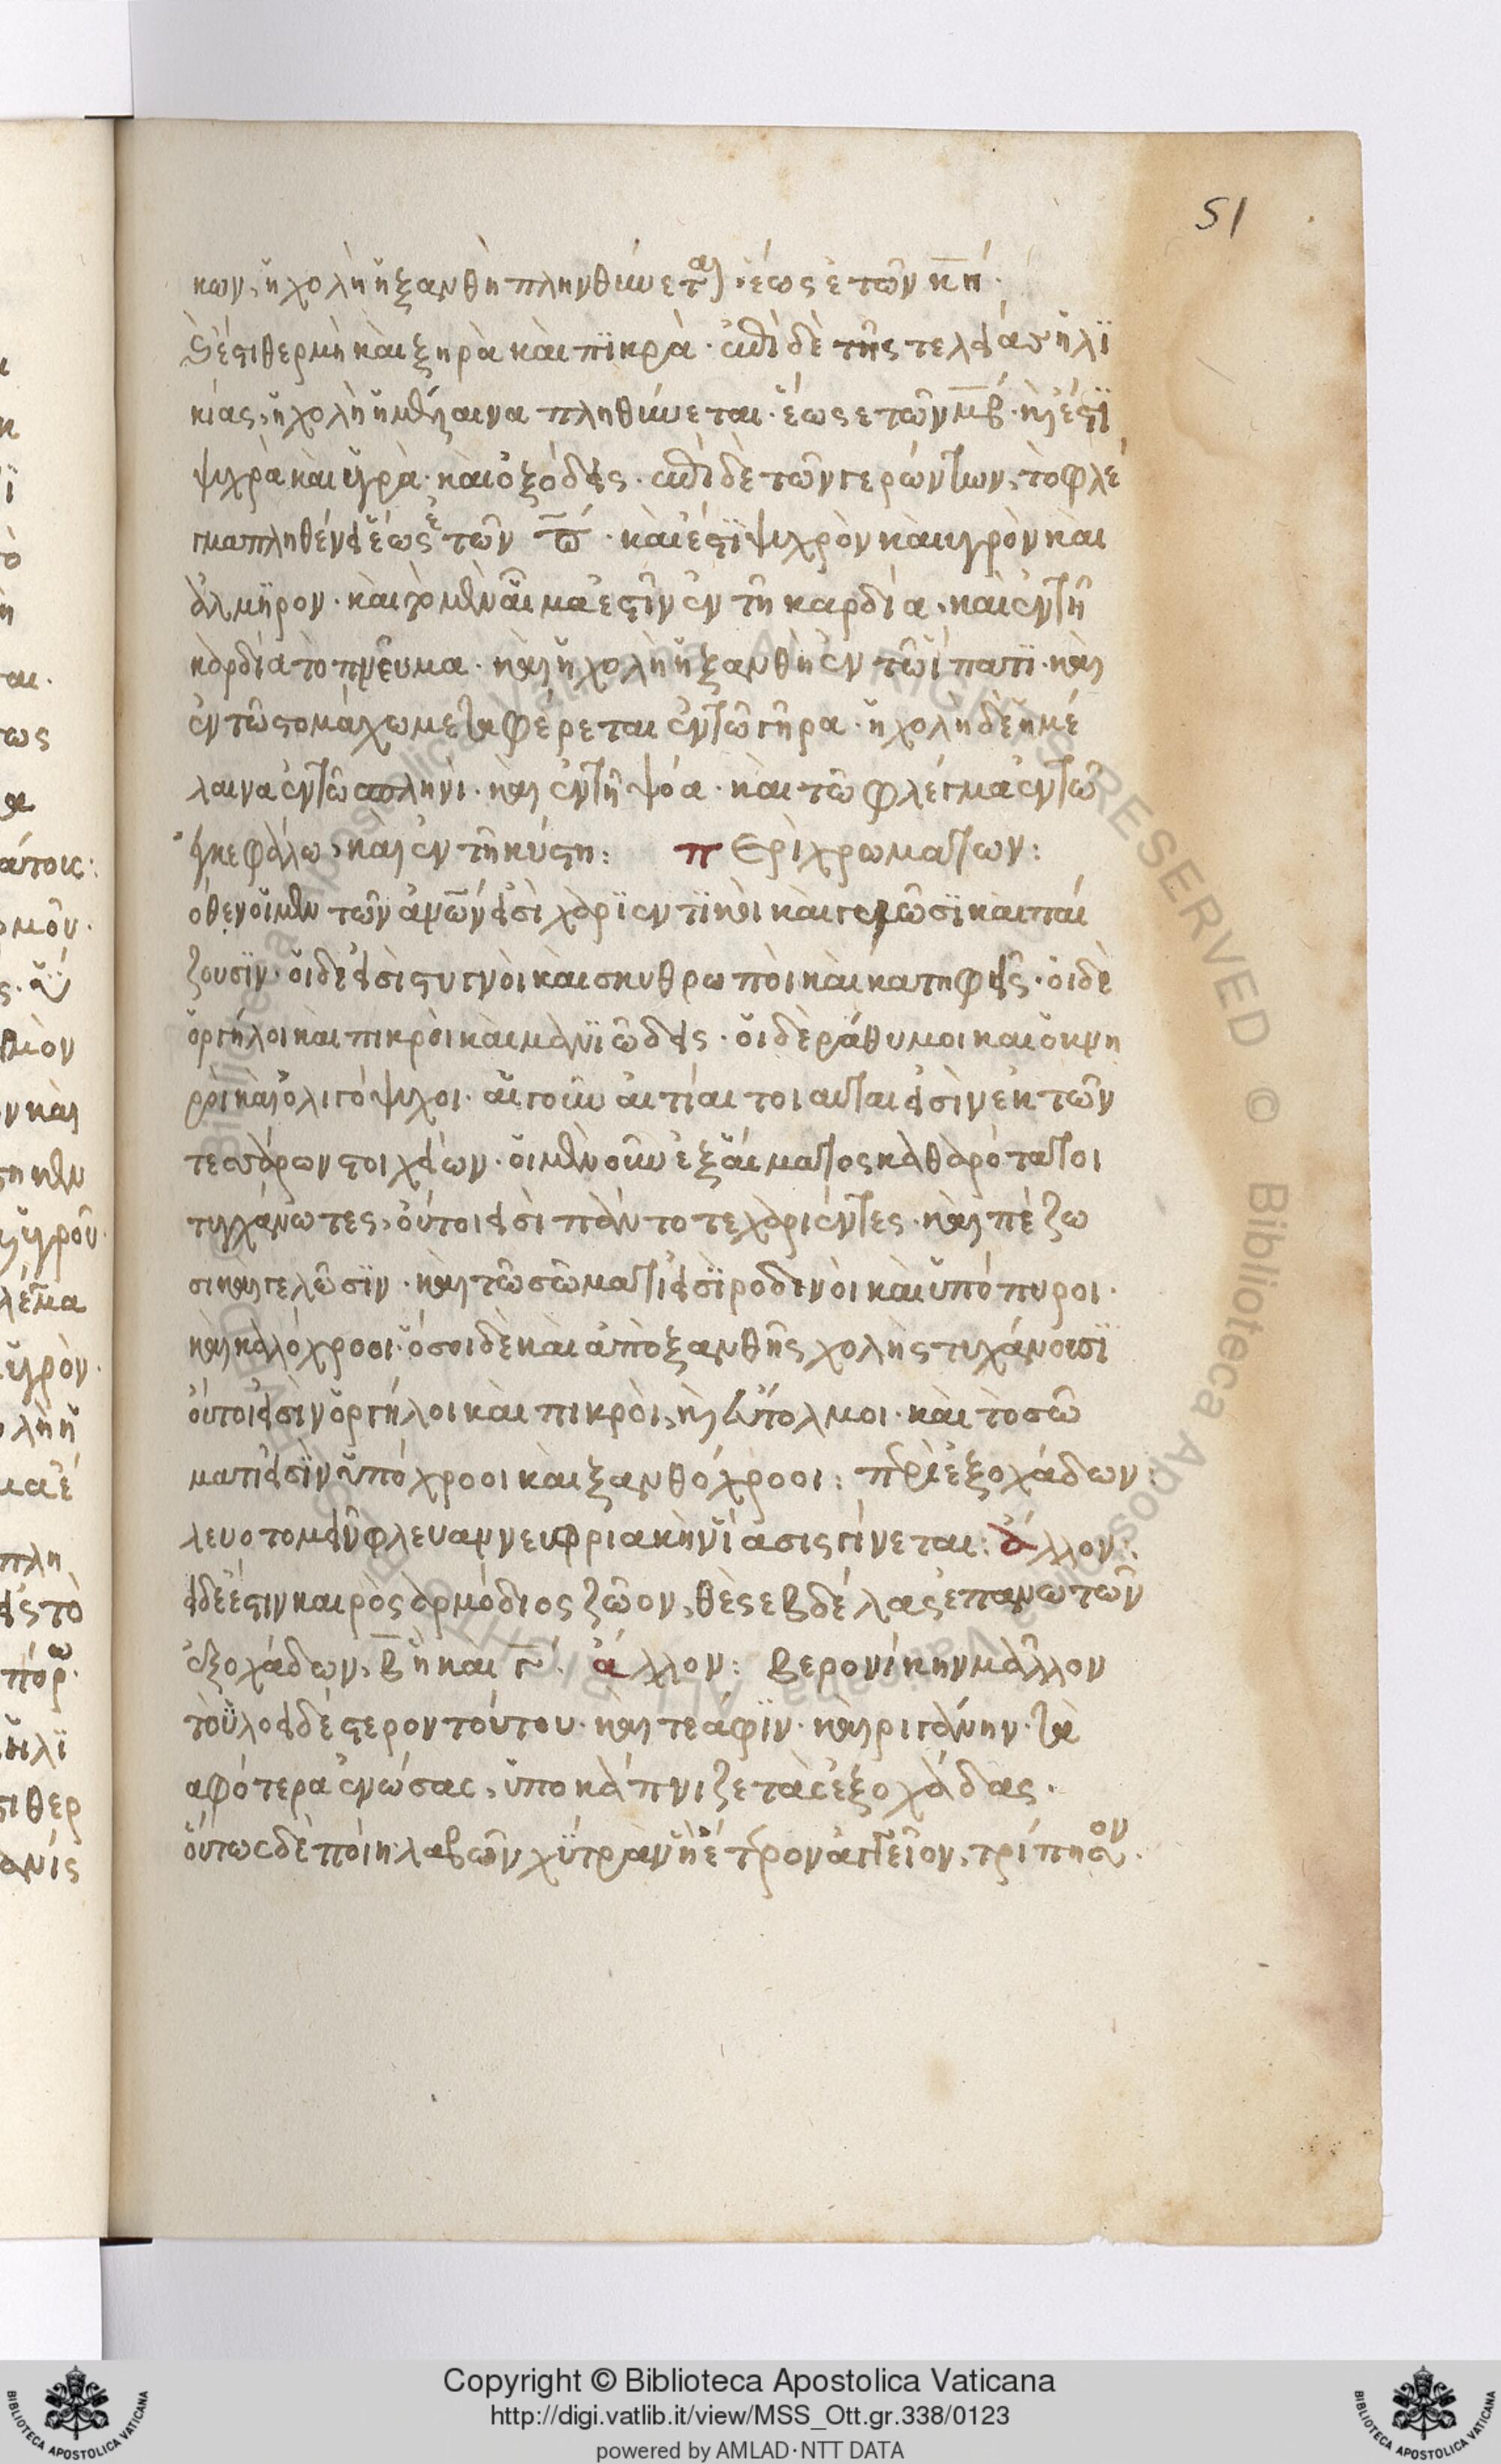 51
κων, ἡ χολὴ ἡ ξανθὴ πληνθύνεται· ἕως ἐτῶν κη·
ἐστι θερμὴ καὶ ξηρὰ καὶ πϊκρὰ· ἐπὶ δὲ τῆς τελείας ἡλϊ
κίας, ἡ χολὴ ἡ μέλαινα πληθύνεται· ἕως ετῶν μβ· κὶ ἐστϊ
ψυχρὰ καὶ ὑγρὰ· καὶ ὀξόδεις· ἐπὶ δὲ τῶν γερώντων, τὸ φλέ
γμα πληθένει ἕως ἐ τῶν π· καὶ ἐστϊ ψυχρὸν καὶ υγρὸν καὶ
ἁλμῆρον· καὶ τὸ μὲν αἷμα ἐστὶν ἐν τῆ καρδία· καὶ ἐν τῆ
καρδία τὸ πνεῦμα· καὶ ἡ χολὴ ἡ ξανθὴ ἐν τῶ ἵπατϊ· καὶ
ἐν τῶ στομάχω μεταφέρεται ἐν τῶ γῆρα· ἡ χολὴ δὲ ἡ μέ
λαινα ἐν τῶ σπληνὶ· καὶ ἐν τῆ ψόα· καὶ τῶ φλέγμα ἐν τῶ
ἐγκεφάλω, καὶ ἐν τῆ κύστη: πΕρὶ χρωμάτων:
όθεν οἱ μὲν τῶν ἀνῶν εἰσὶ χάρϊεντϊκὶ καὶ γελῶσϊ καὶ παί
ζουσϊν· οἱ δὲ εἰσὶ στυγνὸι καὶ σκυθρωπὸι καὶ κατηφεῖς· ὁι δὲ
ὀργήλοι καὶ πικρὸι καὶ μανϊῶδεις· οἱ δὲ ράθυμοι καὶ ὀκνη
ρὸι καὶ ὀλιγόψυχοι· αἱ γοῦν ἀιτίαι τοιαῦται εἰσὶν ἐκ τῶν
τεσσάρων στοιχείων· οἱ μὲν οὖν ἐξ αἵματος καθαρότατοι
τυγχάνωτες, οὑτοι εἰσὶ πάντοτε χαριέντες· καὶ πέζω
σι καὶ γελῶσϊν· καὶ τῶ σῶματι εἰσϊ ροδινὸι καὶ ὑπόπυροι·
καὶ καλόχροοι· ὁσοι δὲ καὶ ἀπὸ ξανθῆς χολῆς τυχάνουσϊ
οὑτοι εἰσὶν ὀργήλοι καὶ πικρὸι, κὶ εὐτόλμοι· καὶ τὸ σῶ
ματι εἰσὶν ὑπόχροοι καὶ ξανθόχροοι: περὶ ἐξοχάδων:
ἄλλον:
ἐστιν καιρὸς ἁρμόδιος ζῶον, θὲς εβδέλας ἐπανω τῶν
ἐξοχάδων, β ἢ καὶ γ· ἀλλον: βερονίκην μᾶλλον
τούτου· καὶ τεάφϊν· καὶ ριγάνην· τὰ
αφότερα ἑνώσας, ὑποκάπνιζε τὰς ἐξοχάδας·
οὑτως δὲ πόιη· λαβῶν χύτραν ἢ ἕτερον ἀγγεῖον,